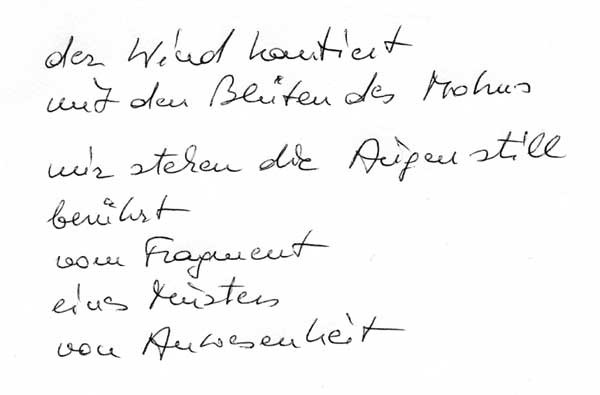 der Wind hantiert
mit den Blüten des Mohns
mir stehen die Augen still
berührt
vom Fragment
eines Musters
von Anwesenheit